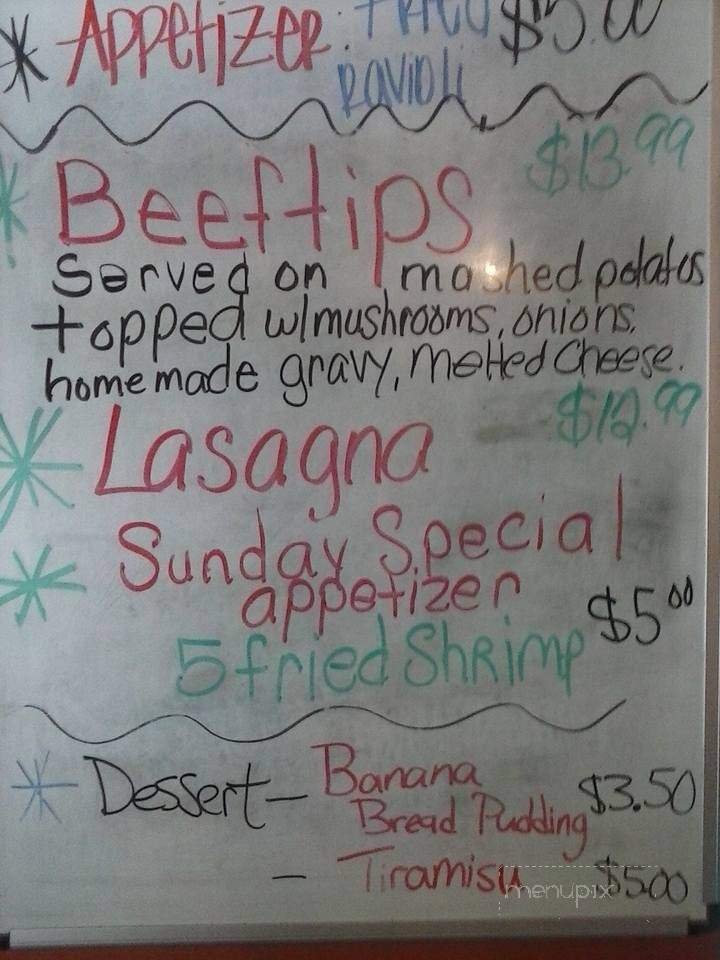 * Appetizer: Fried $5.00
Ravioli
* Beeftips $13.99
Served on mashed potatos
topped w/mushrooms, onions,
homemade gravy, melted cheese.
* Lasagna $12.99
* Sunday Special
appetizer $5.00
5 fried Shrimp
* Dessert - Banana $3.50
Bread Pudding
- Tiramisu $5.00
menupix